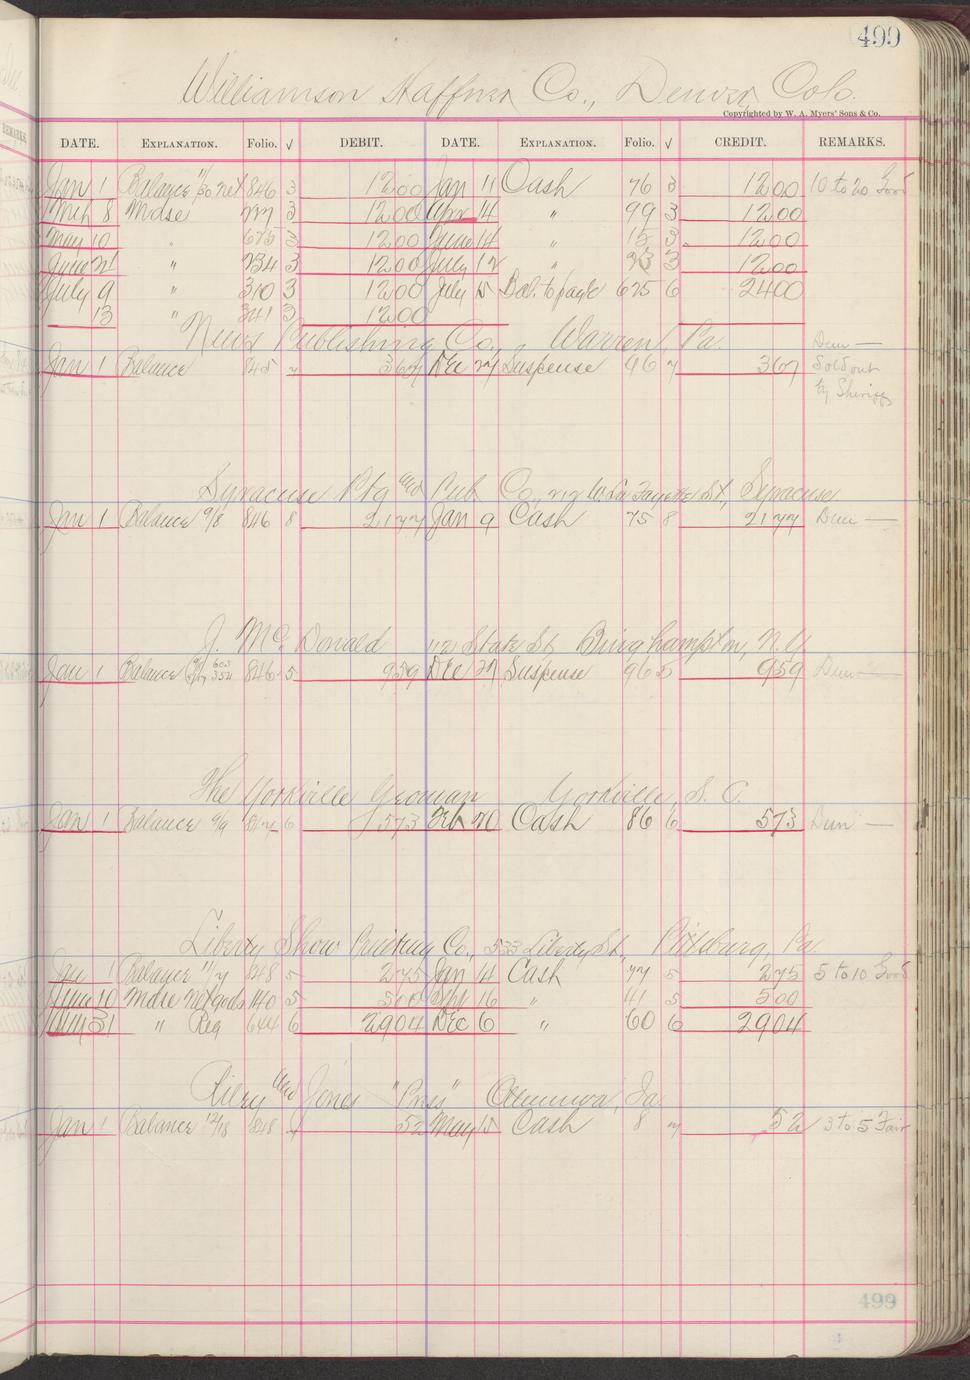 499
Williamson Haffner Co., Denver, Colo.
Copyrighted by W. A. Myers' Sons & Co.
DATE. EXPLANATION. Folio. √ DEBIT. DATE. EXPLANATION. Folio. √ CREDIT. REMARKS.
Jan 1 Balance net 846 3 1200 Jan 11 Cash 76 3 1200 10 to 20 Good
Mch 8 Mdse 3 1200 Apr 14 " 99 3 1200
May 10 " 675 3 1200 June 14 " 15 3 1200
June 21 " 234 3 1200 July 12 " 3 1200
July 9 " 310 3 1200 July 15 Bal. to page 625 6 2400
13 " 341 3 1200
News Publishing Co., Warren, Pa.
Jan 1 Balance 845 7 367 Dec 27 Suspense 96 7 367 Dun — Sold out
by Sheriff
Syracuse Ptg and Pub Co., 212 W. La Fayette St., Syracuse
Jan 1 Balance 9/8 846 8 2177 Jan 9 Cash 75 8 2177 Dun —
J. Mc Donald 112 State St Binghampton, N. Y.
Jan 1 Balance 846 5 959 Dec 27 Suspense 96 5 959 Dun —
The Yorkville Yeoman Yorkville, S. C.
Jan 1 Balance 9/9 847 6 573 Feb 20 Cash 86 6 573 Dun —
Liberty Show Printing Co., 533 Liberty St., Pittsburg, Pa.
Jan 1 Balance 11/7 848 5 275 Jan 14 Cash 77 5 275 5 to 10 Good
June 10 Mdse net goods 140 5 500 Sept 16 " 41 5 500
31 " Reg 644 6 2904 Dec 6 " 60 6 2904
Riley and Jones "Press" Ottumwa, Ia.
Jan 1 Balance 12/18 848 7 52 May 15 Cash 8 7 52 3 to 5 Fair
499